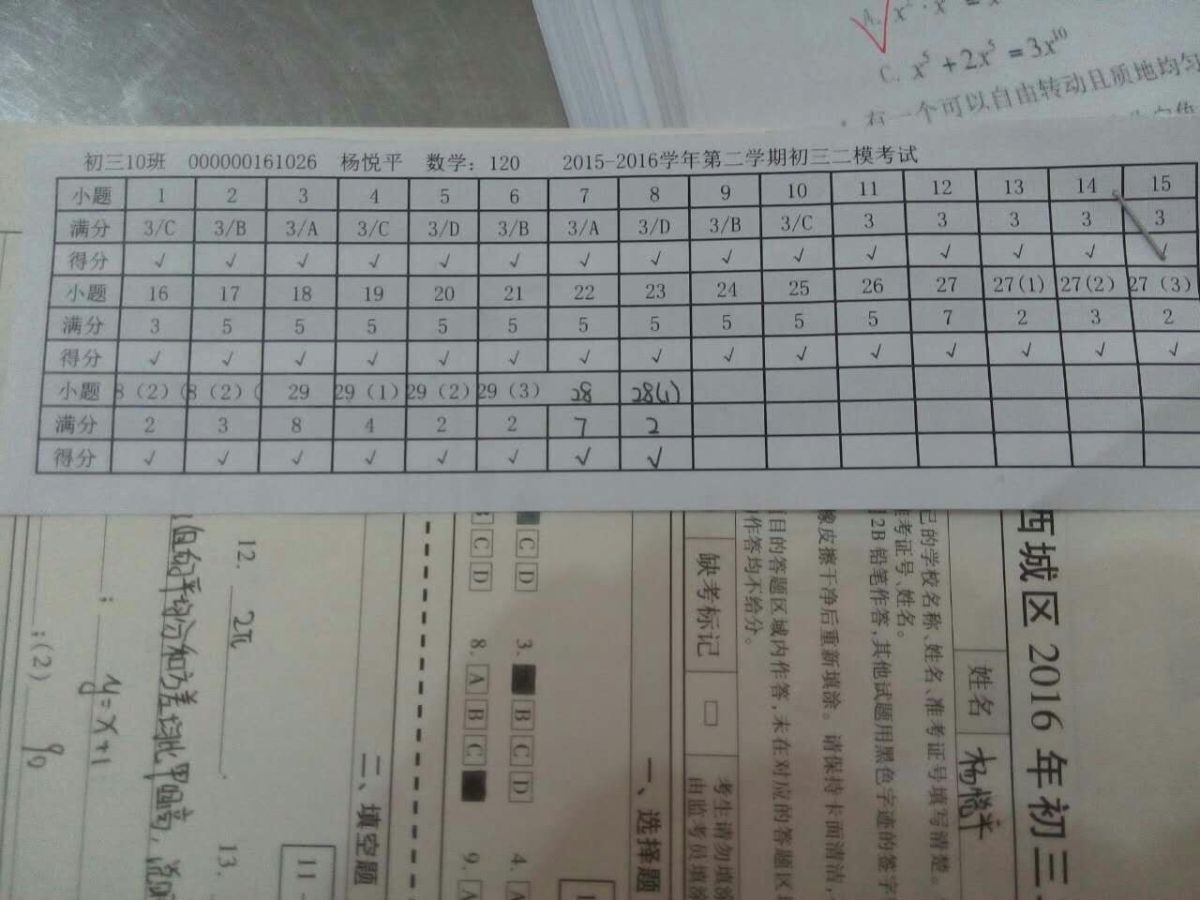 C. x⁵ + 2x⁵ = 3x¹⁰
有一个可以自由转动且质地均匀
初三10班 000000161026 杨悦平 数学：120 2015-2016学年第二学期初三二模考试
小题 1 2 3 4 5 6 7 8 9 10 11 12 13 14 15
满分 3/C 3/B 3/A 3/C 3/D 3/B 3/A 3/D 3/B 3/C 3 3 3 3 3
得分 √ √ √ √ √ √ √ √ √ √ √ √ √ √ √
小题 16 17 18 19 20 21 22 23 24 25 26 27 27(1) 27(2) 27（3）
满分 3 5 5 5 5 5 5 5 5 5 5 7 2 3 2
得分 √ √ √ √ √ √ √ √ √ √ √ √ √ √ √
小题 8（2）( 8（2）( 29 29（1） 29（2） 29（3） 28 28(1)
满分 2 3 8 4 2 2 7 2
得分 √ √ √ √ √ √ √ √
西城区 2016 年初三
姓名 杨悦平
己的学校名称、姓名、准考证号填写清楚。
考证号、姓名。
2B 铅笔作答，其他试题用黑色字迹的签字
橡皮擦干净后重新填涂。请保持卡面清洁，
目的答题区域内作答，未在对应的答题区
作答均不给分。
缺考标记 □ 考生请勿填涂
由监考员填涂
一、选择题
C D 3. B C D 4. A
C D 8. A B C 9. A
二、填空题
11
12. 2π 13.
的平均分和方差均比甲组高，说明
; y=x+1
;(2) 90